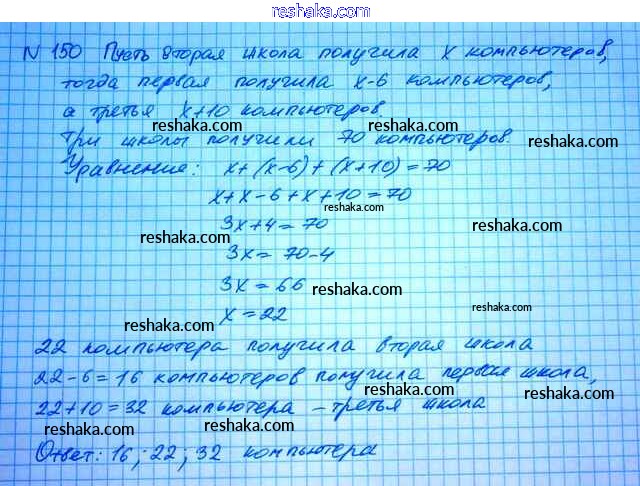 reshaka.com
N 150 Пусть вторая школа получила x компьютеров,
тогда первая получила x-6 компьютеров,
а третья x+10 компьютеров.
reshaka.com
Три школы получили 70 компьютеров.
reshaka.com
reshaka.com
Уравнение: x+(x-6)+(x+10)=70
x+x-6+x+10=70
reshaka.com
3x+4=70
reshaka.com
3x=70-4
3x=66
reshaka.com
x=22
reshaka.com
reshaka.com
22 компьютера получила вторая школа
22-6=16 компьютеров получила первая школа,
reshaka.com
22+10=32 компьютера - третья школа
reshaka.com
reshaka.com
Ответ: 16; 22; 32 компьютера
reshaka.com